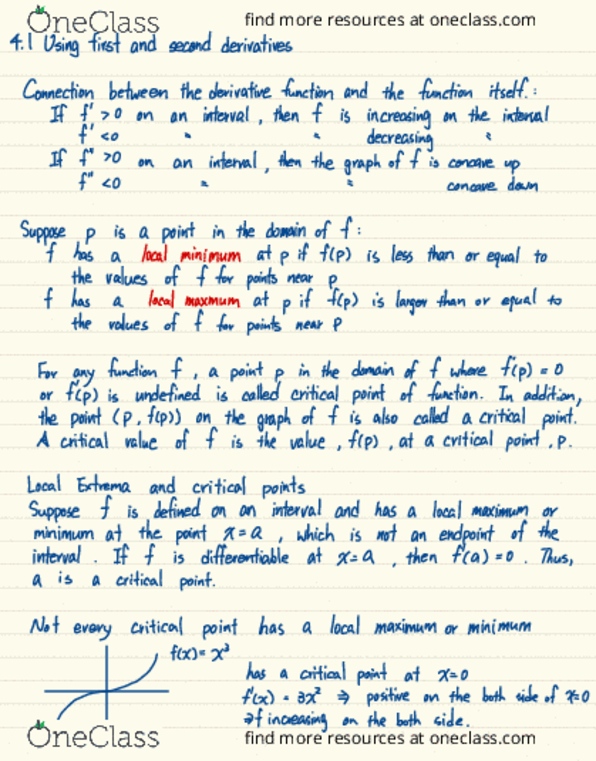 OneClass find more resources at oneclass.com
4.1 Using first and second derivatives
Connection between the derivative function and the function itself.:
If f' >0 on an interval, then f is increasing on the interval
f' <0 " " decreasing "
If f" >0 on an interval, then the graph of f is concave up
f" <0 " " concave down
Suppose p is a point in the domain of f:
f has a local minimum at p if f(p) is less than or equal to
the values of f for points near p
f has a local maxmum at p if f(p) is larger than or equal to
the values of f for points near p
For any function f, a point p in the domain of f where f'(p) = 0
or f'(p) is undefined is called critical point of function. In addition,
the point (p, f(p)) on the graph of f is also called a critical point.
A critical value of f is the value, f(p), at a critical point, p.
Local Extrema and critical points
Suppose f is defined on an interval and has a local maximum or
minimum at the point x=a, which is not an endpoint of the
interval. If f is differentiable at x=a, then f'(a)=0. Thus,
a is a critical point.
Not every critical point has a local maximum or minimum
f(x)= x³
has a critical point at x=0
f'(x) = 3x² ⇒ positive on the both side of x=0
⇒f increasing on the both side.
OneClass find more resources at oneclass.com